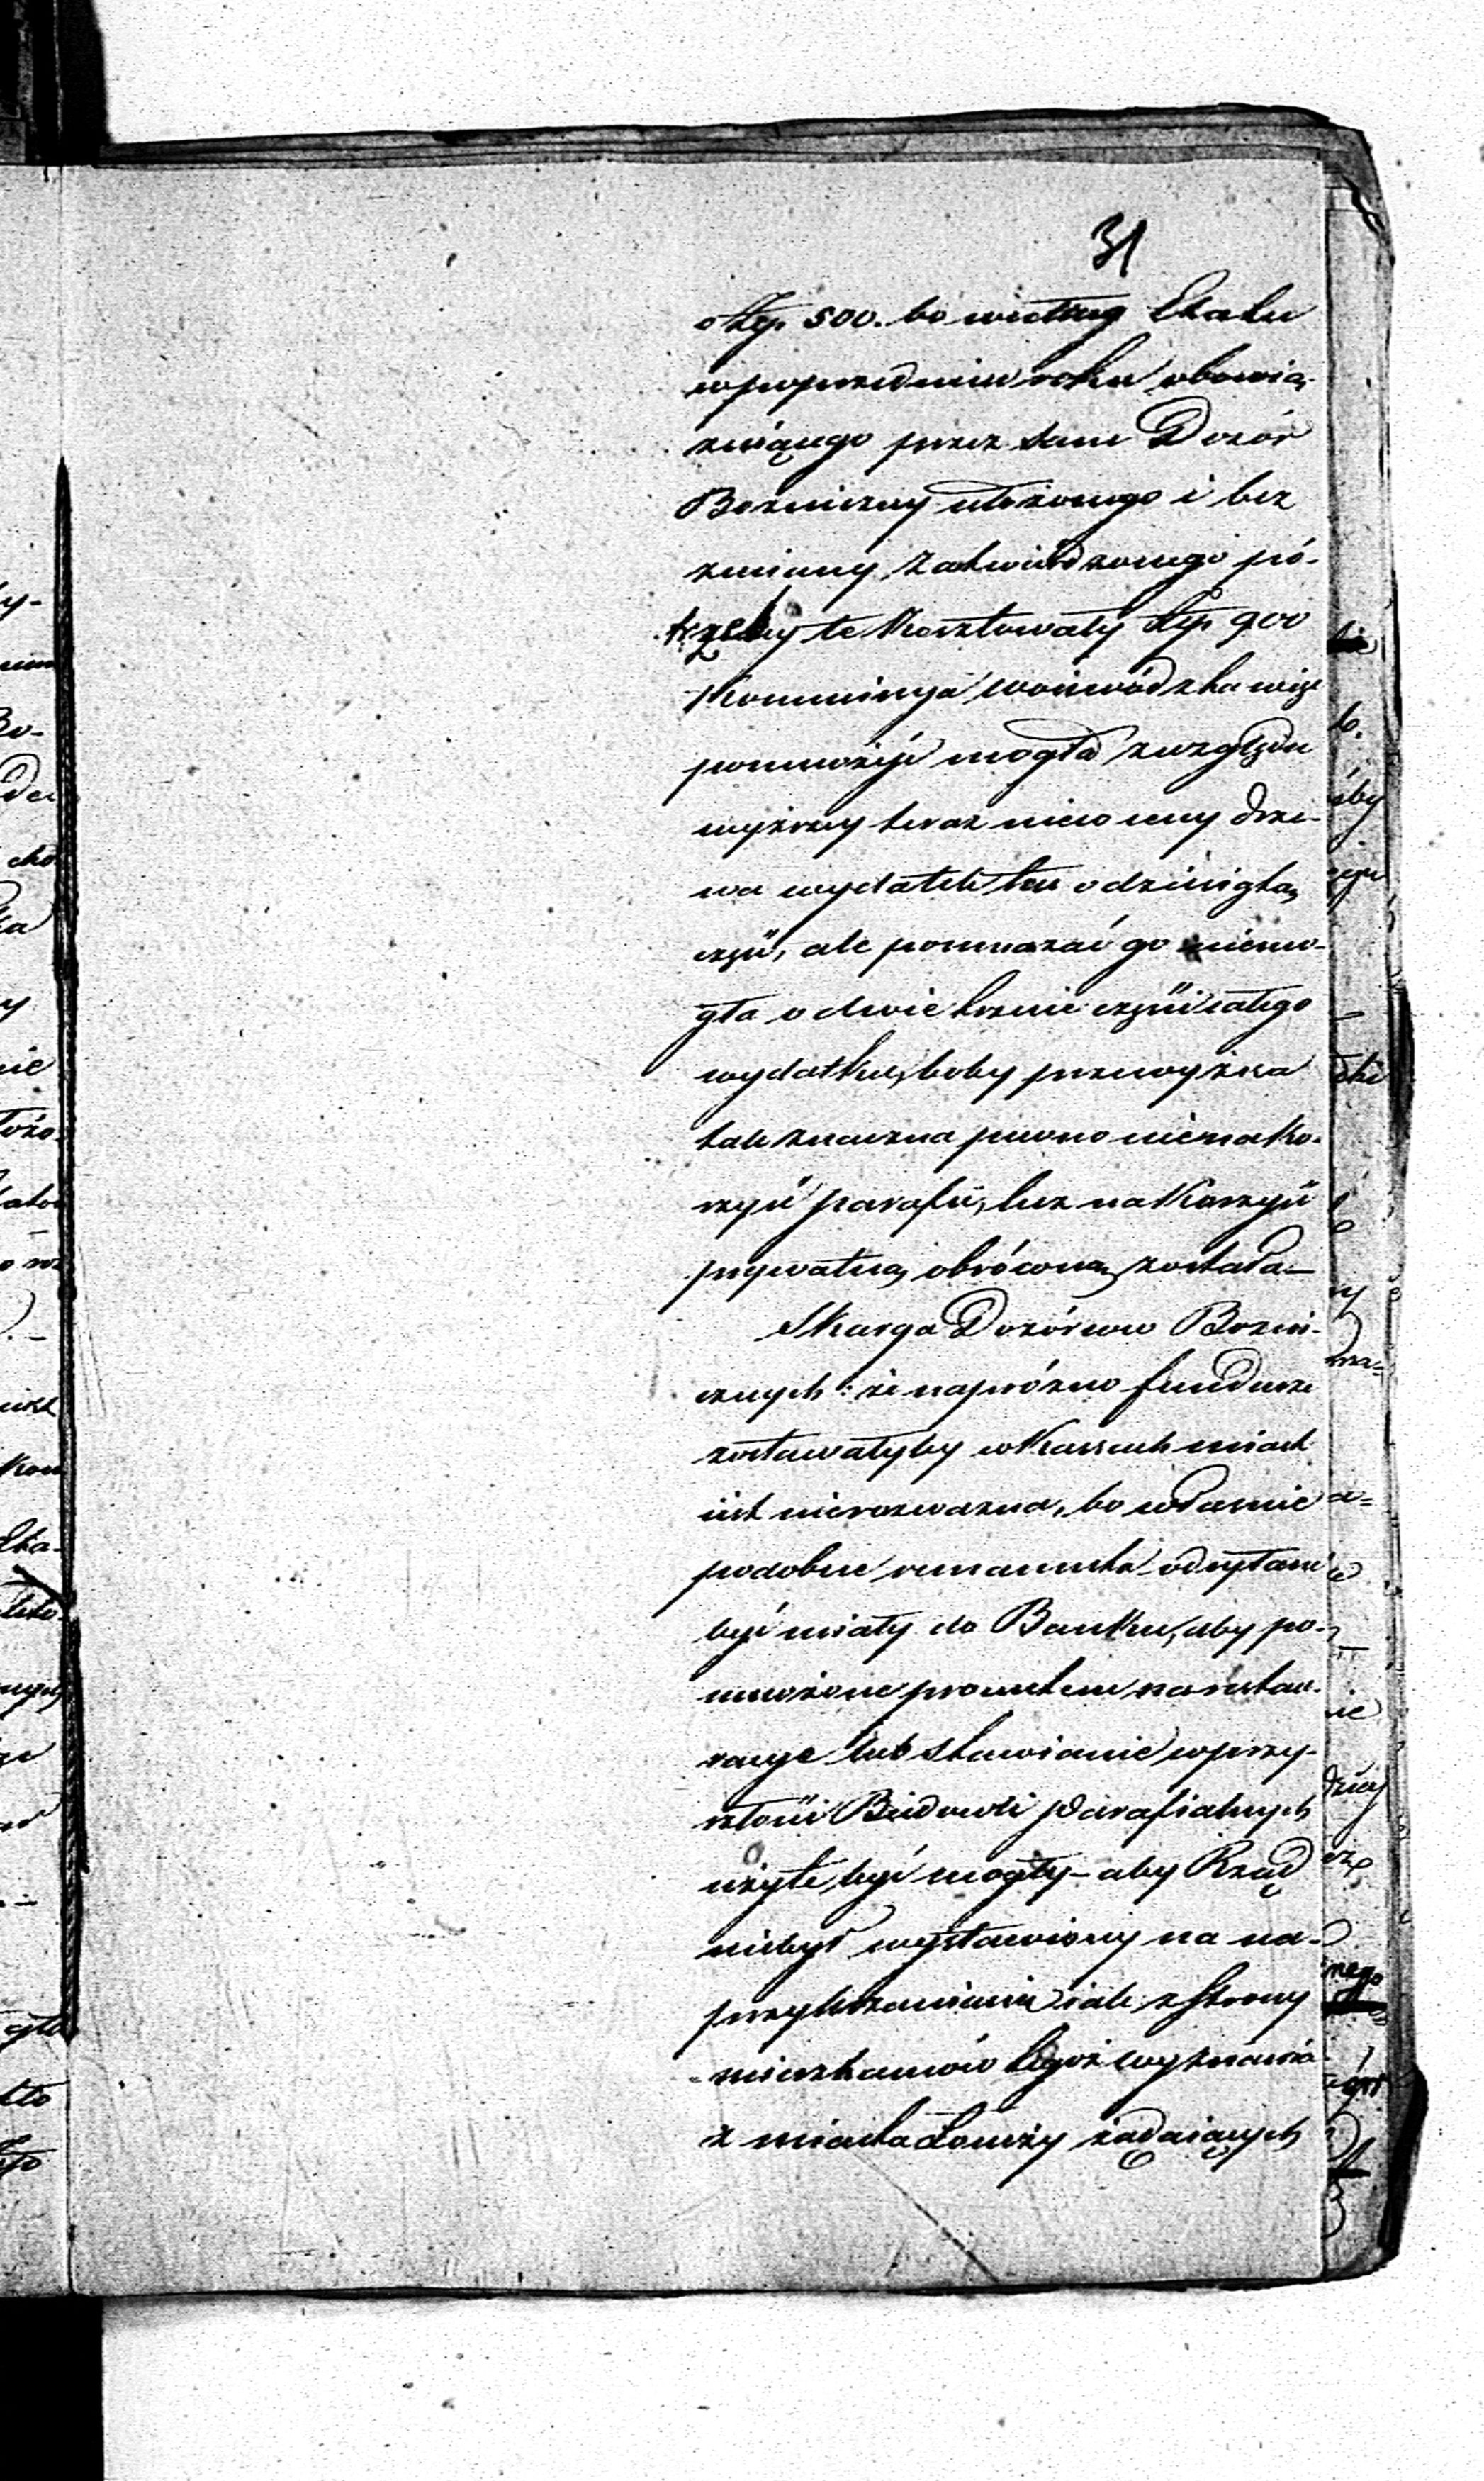 31
o Złp. 500. bo według Etatu
w poprzedniem roku obowią-
zuiącego przez sam Dozór
Bożniczny ułożonego i bez
zmiany zatwierdzonego po-
trzeby te kosztowały Złp 900
Kommissya Woiewódzka więc
pomnożyć mogła z względu
wyższey teraz nieco ceny drze-
wa wydatek ten o dziesiątą
część, ale pomnażać go niemo-
gła o dwie trzecie części całego
wydatku, boby przewyżka
tak znaczna pewno nie na ko-
rzyść parafii, lecz na korzyść
prywatną obróconą została.—
Skarga Dozórców Bożni-
cznych: że napróżno fundusze
zostawałyby w Kassach miast
iest nierozważna, bo właśnie
podobne remanenta odsyłane
być miały do Banku, aby po-
mnożone procentem na restau-
racye lub stawianie w przy-
szłości Budowli Parafialnych
użyte być mogły – aby Rząd
niebył wystawiony na na-
przykrzanie się iak z strony
mieszkańców tegoż wyznania
z miasta Łomży żądaiących